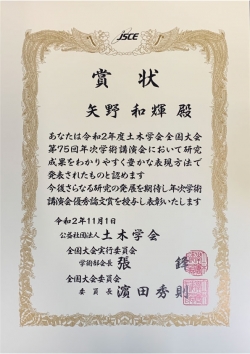 JSCE
賞状
矢野 和輝 殿
あなたは令和2年度土木学会全国大会
第75回年次学術講演会において研究
成果をわかりやすく豊かな表現方法で
発表されたものと認めます
今後さらなる研究の発展を期待し年次学術
講演会優秀論文賞を授与し表彰いたします
令和2年11月1日
公益社団法人 土木学会
全国大会実行委員会
学術部会長 張 鋒
全国大会委員会
委員長 濵田秀則